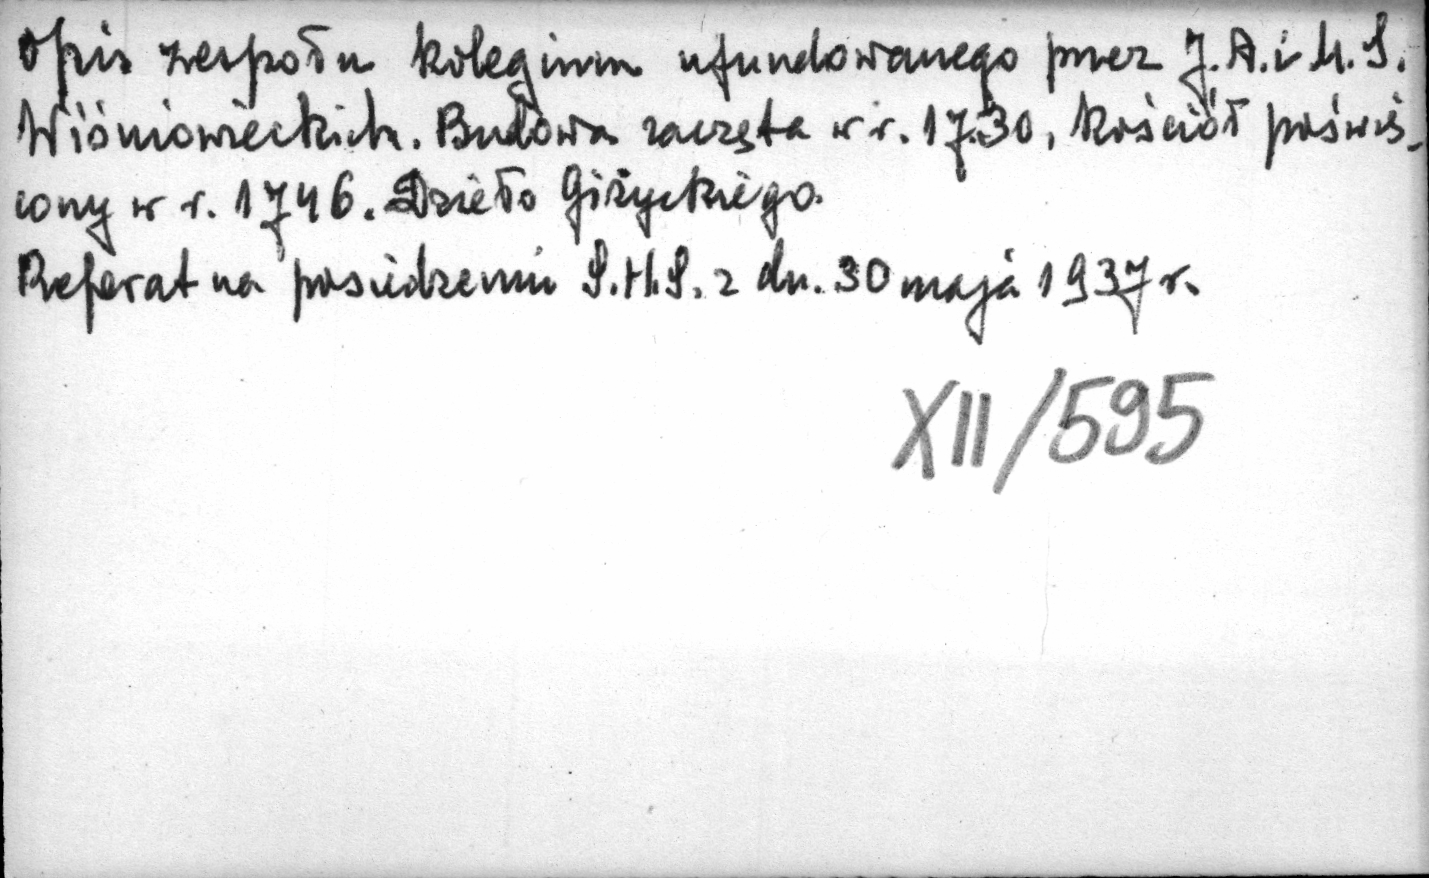 Opis zespołu kolegium ufundowanego przez J. A. i M. S.
Wiśniowieckich. Budowa zaczęta w r. 1730, kościół poświę-
cony w r. 1746. Dzieło Giżyckiego.
Referat na posiedzeniu S.H.S. z dn. 30 maja 1937 r.
XII/595